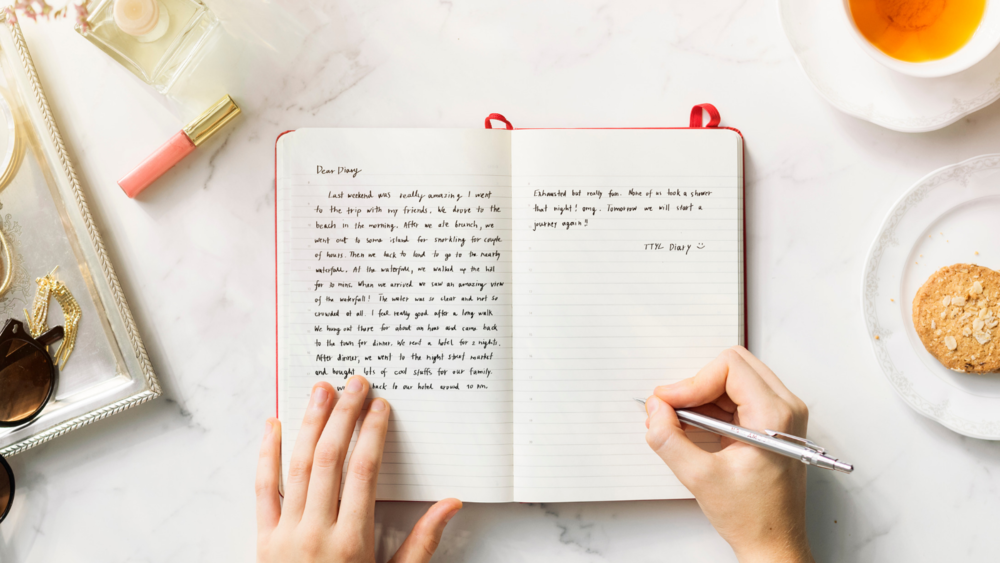 Dear Diary
Last weekend was really amazing. I went
to the trip with my friends. We drove to the
beach in the morning. After we ate brunch, we
went out to some island for snorkling for couple
of hours. Then we back to land to go to the nearby
waterfall. At the waterfall, we walked up the hill
for 30 mins. When we arrived we saw an amazing view
of the waterfall! The water was so clear and not so
crowded at all. I feel really good after a long walk
We hang out there for about an hour and came back
to the town for dinner. We rent a hotel for 2 nights.
After dinner, we went to the night street market
and bought lots of cool stuffs for our family.
back to our hotel around 10 pm.
Exhausted but really fun. None of us took a shower
that night! omg.. Tomorrow we will start a
journey again!!
TTYL Diary